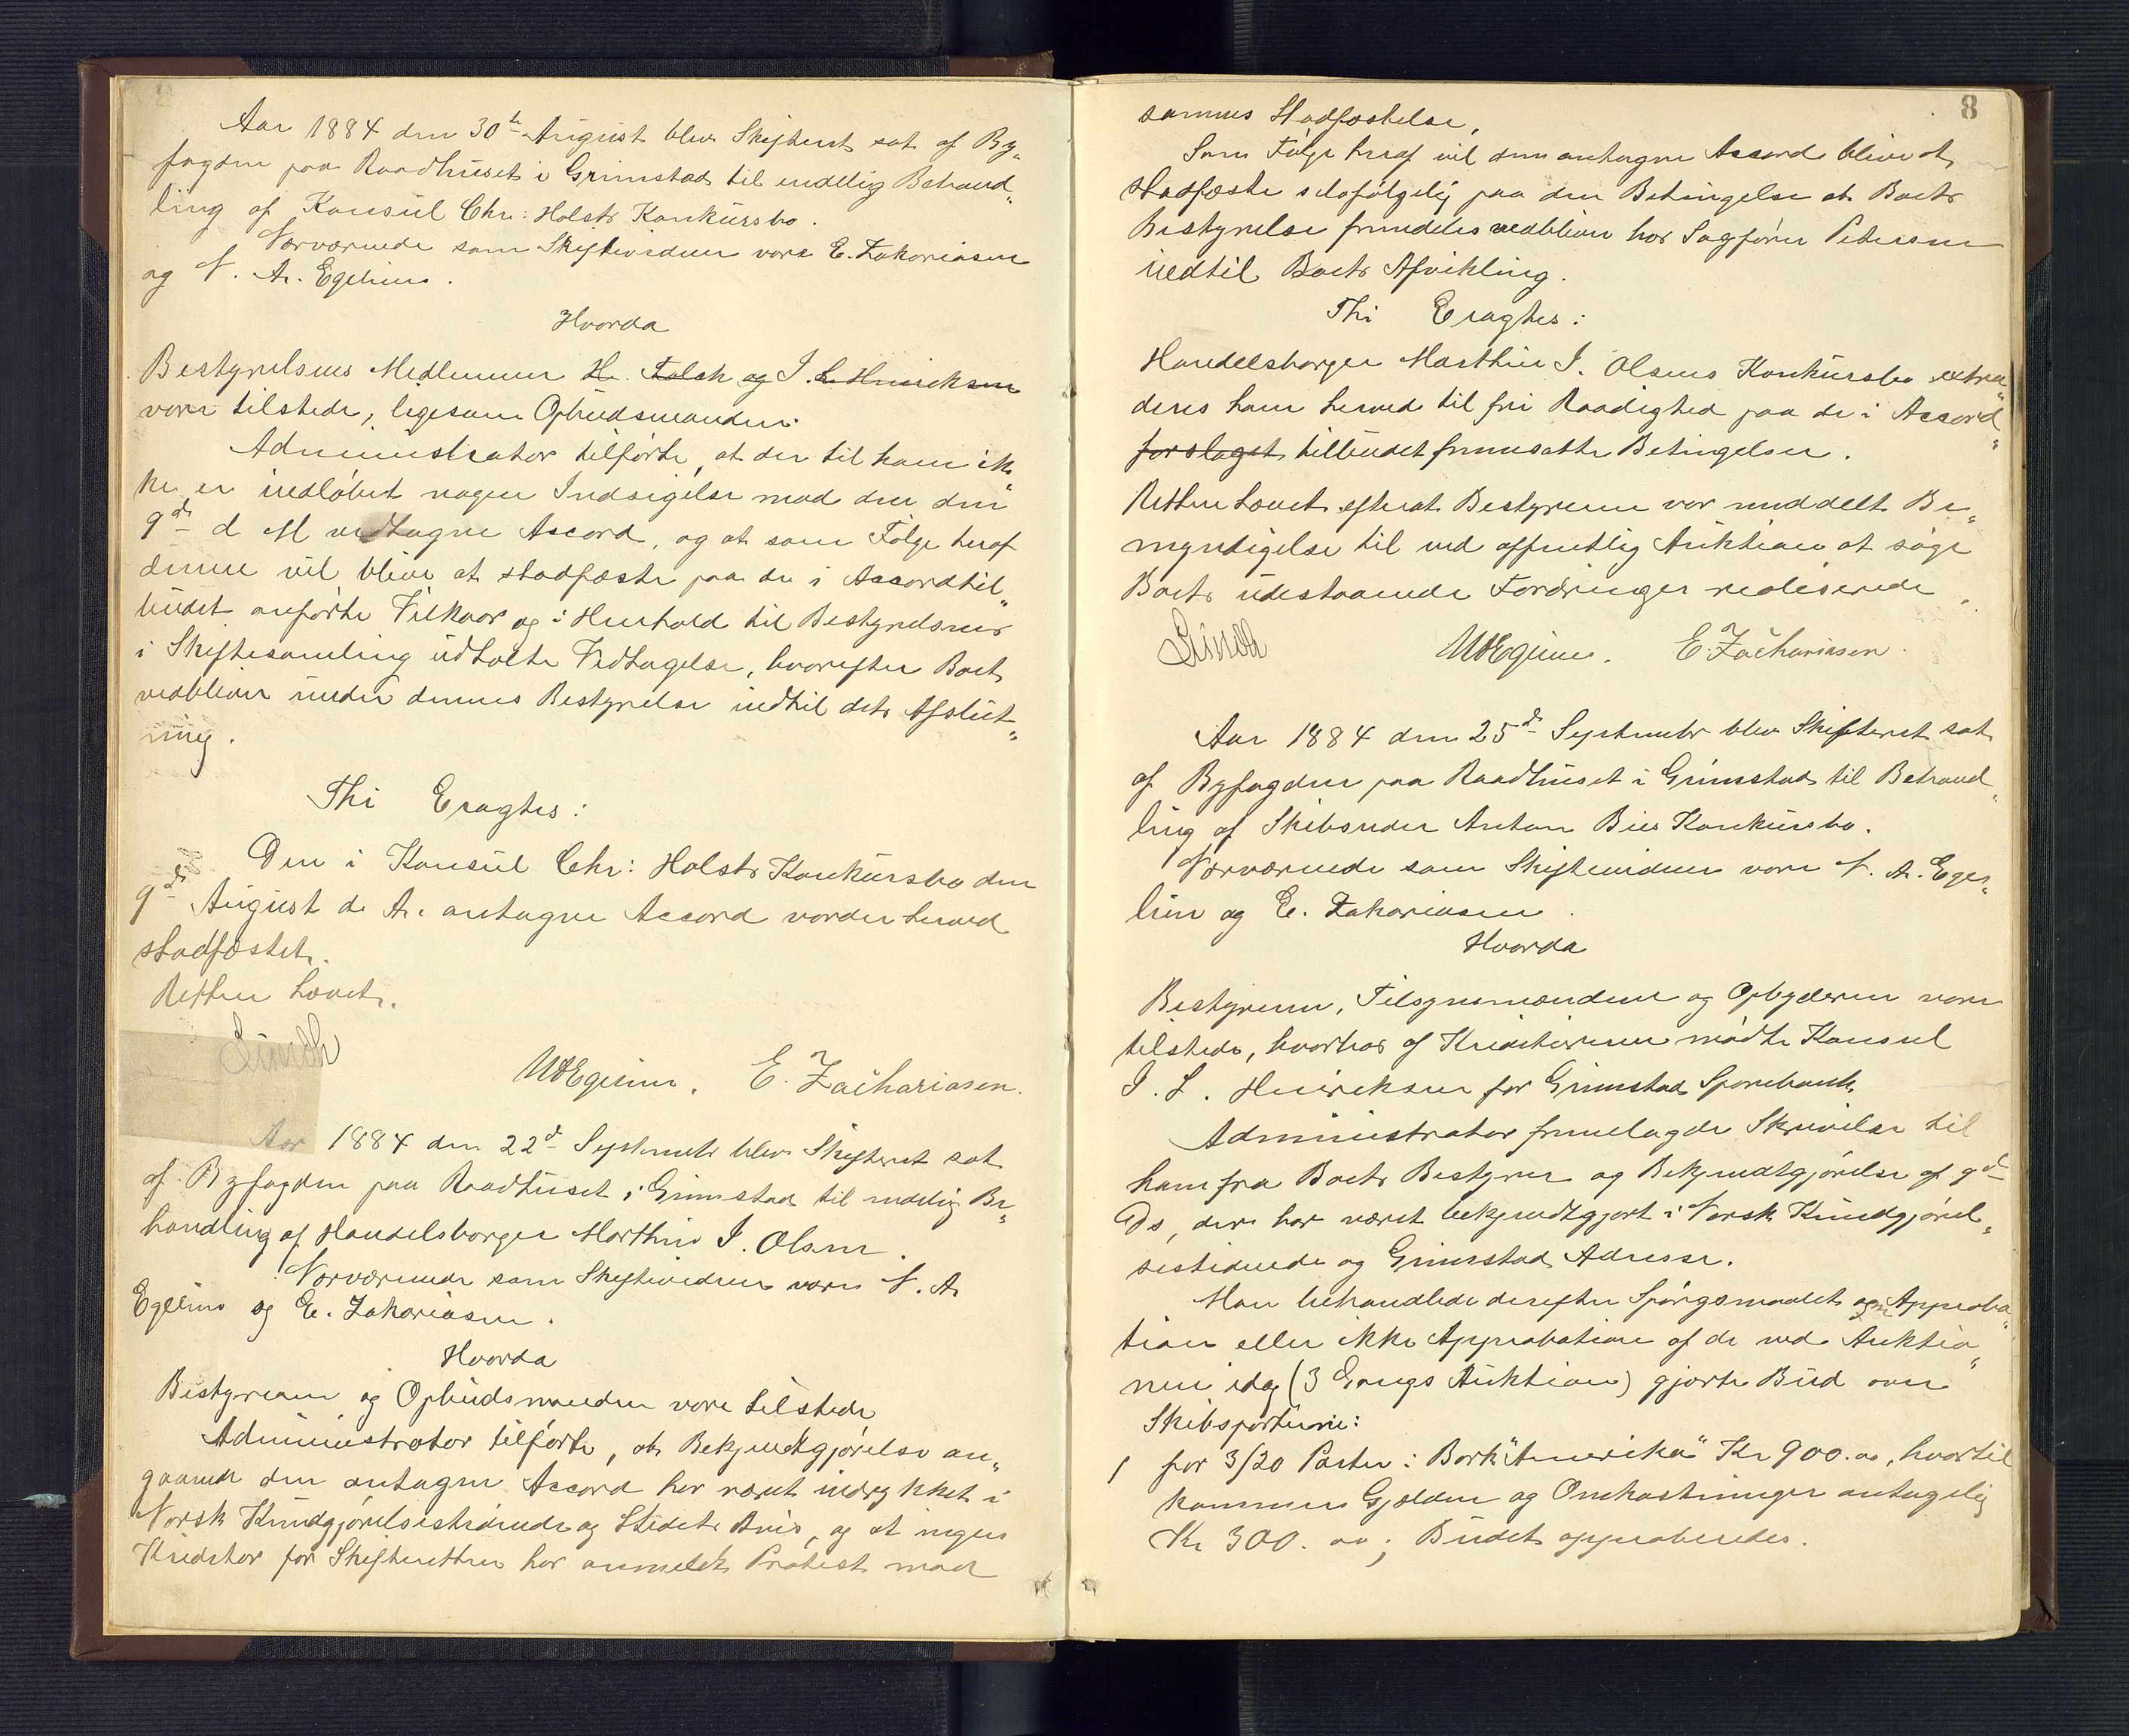 Aar 1884 den 30te August blev Skifteret sat af By„
fogden paa Raadhuset i Grimstad til endelig Behand„
ling af Konsul Chr: Holsts Konkursbo.
Nærværende som Skiftevidner vare E. Zakariasen
og N. A. Egelius.
Hvorda
Bestyrelsens Medlemmer H. Falch og I. L. Henriksen
vare tilstede, ligesom Opbudsmanden.
Administrator tilførte, at der til ham ik„
ke er indløbet nogen Indsigelse mod den den
9de d M vedtagne Accord, og at som Følge heraf
denne vil blive at stadfæste paa de i Accordtil„
budet anførte Vilkaar og i Henhold til Bestyrelsens
i Skiftesamling udtalte Vedtagelse, hvorefter Boet
vedbliver under dennes Bestyrelse indtil dets Afslut„
ning.
Thi Eragtes:
Den i Konsul Chr: Holsts Konkursbo den
9de August d. A. antagne Accord vorder herved
stadfæstet.
Retten hævet.
Lundh
E. Zachariasen.
Aar 1884 den 22de September blev Skifteret sat
af Byfogden paa Raadhuset i Grimstad til endelig Be„
handling af Handelsborger Marthin I. Olsen.
Nærværende som Skiftevidner vare N. A.
Egelius og E. Zakariasen.
Hvorda
Bestyreren og Opbudsmanden vare tilstede
Administrator tilførte, at Bekjendtgjørelse an„
gaaende den antagne Accord har været indrykket i
Norsk Kundgjørelsestidende og Stedets Avis, og at ingen
Kreditor for Skifteretten har anmeldt Protest mod
8
sammes Stadfæstelse.
Som Følge heraf vil den antagne Accord blive at
stadfæste selvfølgelig paa den Betingelse at Boets
Bestyrelse fremdeles vedbliver hos Sagfører Petersen
indtil Boets Afvikling.
Thi Eragtes:
Handelsborger Marthin I. Olsens Konkursbo extra„
deres ham herved til fri Raadighed paa de i Accord„
forslaget tilbudet fremsatte Betingelser.
Retten hævet efterat Bestyreren var meddelt Be„
myndigelse til ved offentlig Auktion at søge
Boets udestaaende Fordringer realiserede.
Lundh
E. Zachariasen.
Aar 1884 den 25de September blev Skifteret sat
af Byfogden paa Raadhuset i Grimstad til Behand„
ling af Skibsreder Anton Bies Konkursbo.
Nærværende som Skiftevidner vare N. A. Ege„
lius og E. Zakariasen.
Hvorda
Bestyreren, Tilsynsmændene og Opbyderen vare
tilstede, hvorhos af Kreditorerne mødte Konsul
I. L. Henriksen for Grimstad Sparebank.
Administrator fremlagde Skrivelse til
ham fra Boets Bestyrer og Bekjendtgjørelse af 9de
Ds, der har været bekjendtgjort i Norsk Kundgjørel„
sestidende og Grimstad Adresse.
Man behandlede derefter Spørgsmaalet om Approba„
tion eller ikke Approbation af de ved Auktio„
nen idag (3 Gangs Auktion) gjorte Bud over
Skibsparterne:
1 for 3/20 Parter i Bark "Amerika" Kr 900.00, hvortil
kommer Gjælden og Omkostninger antagelig
Kr 300.00; Budet approberedes.